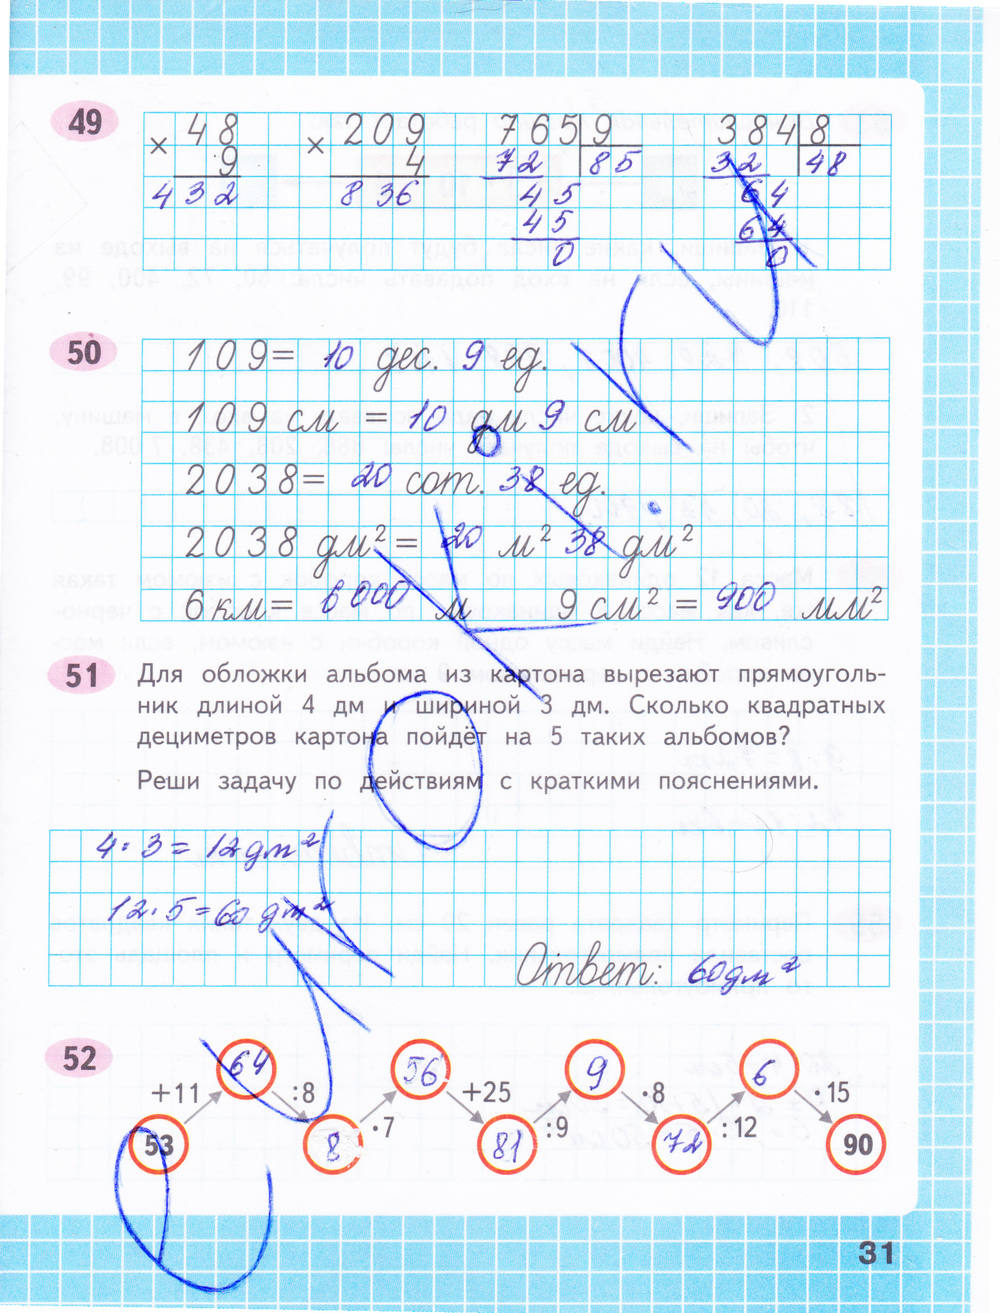 49
× 48 × 209 765 9 384 8
9 4 72 85 32 48
432 836 45 64
45 64
0 0
50
109 = 10 дес. 9 ед.
109 см = 10 дм 9 см
2038 = 20 сот. 38 ед.
2038 дм² = 20 м² 38 дм²
6 км = 6000 м 9 см² = 900 мм²
51 Для обложки альбома из картона вырезают прямоуголь-
ник длиной 4 дм и шириной 3 дм. Сколько квадратных
дециметров картона пойдёт на 5 таких альбомов?
Реши задачу по действиям с краткими пояснениями.
4·3=12дм²
12·5=60 дм²
Ответ: 60дм²
52
64 56 9 6
+11 :8 +25 ·8 ·15
·7 :9 :12
53 8 81 72 90
31